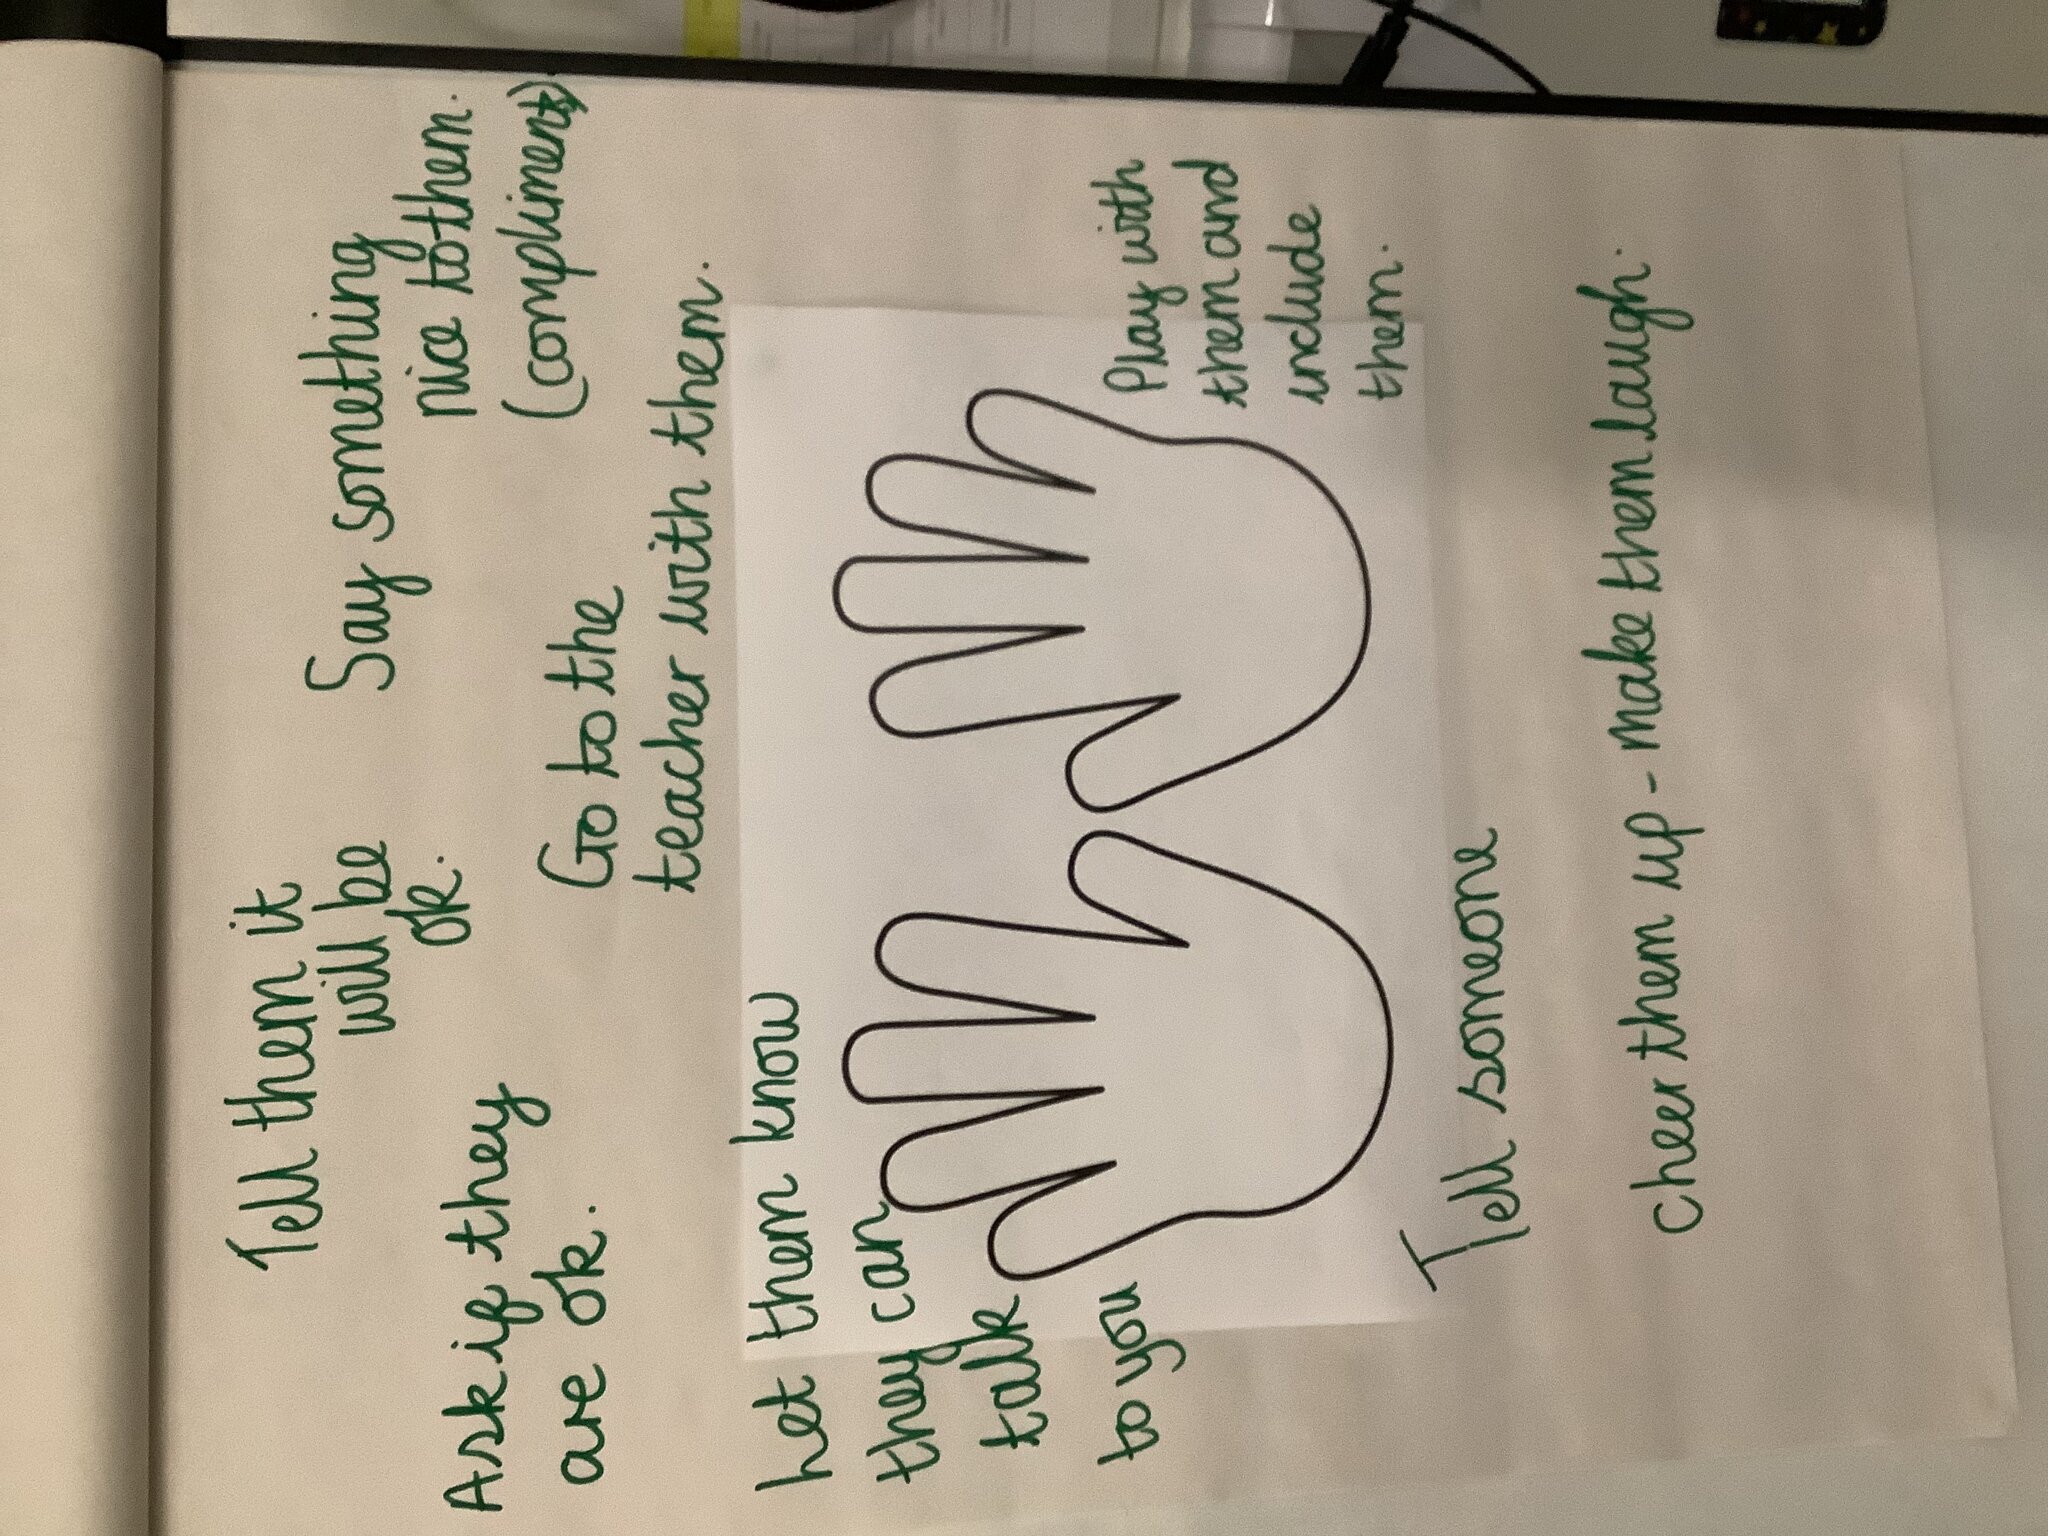 Tell them it
will be
ok.
Say something
nice to them.
(compliments)
Ask if they
are ok.
Go to the
teacher with them.
Let them know
they can
talk
to you
Play with
them and
include
them.
Tell someone
cheer them up - make them laugh.